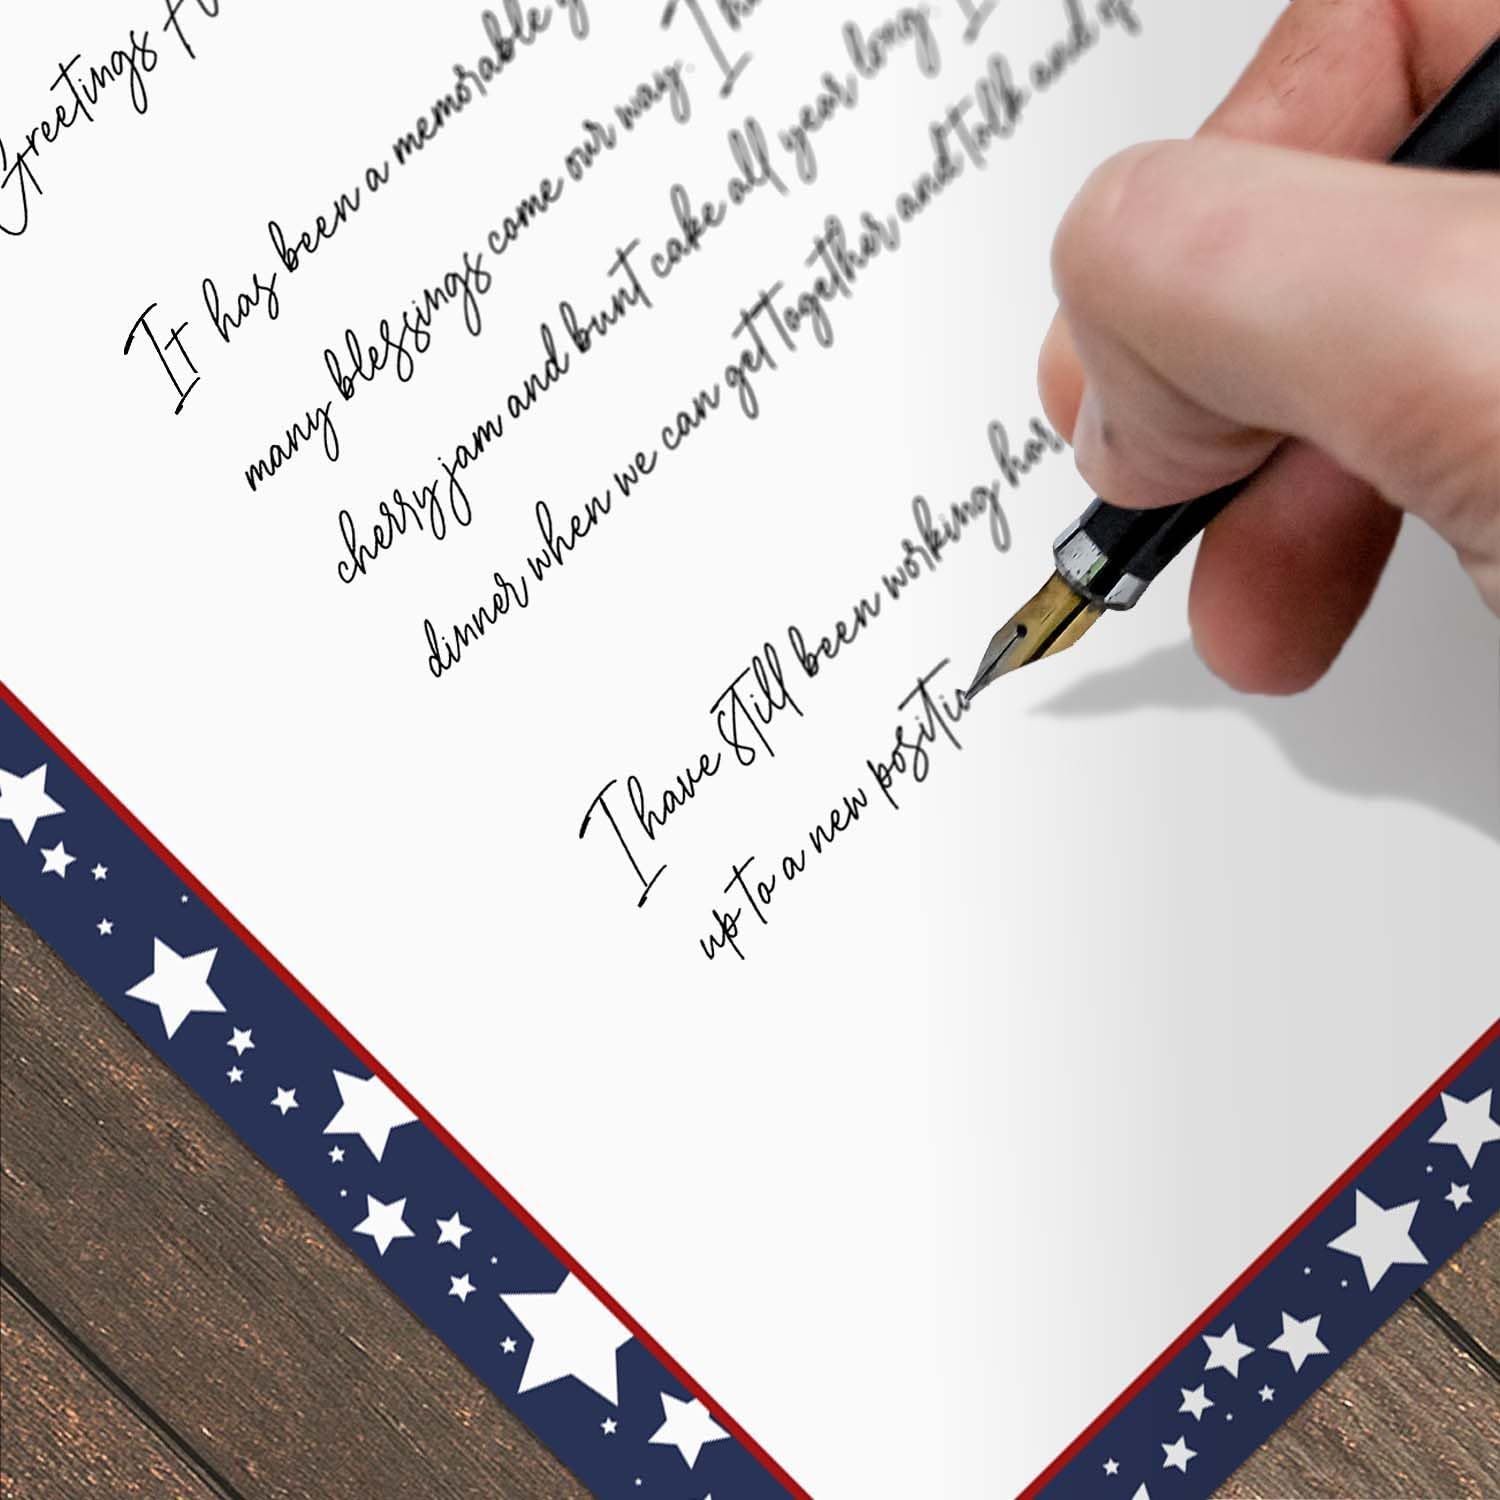 Greetings
It has been a memorable
many blessings come our way.
cherry jam and bunt cake all year long. I
dinner when we can get together and talk and
I have still been working har
up to a new positio